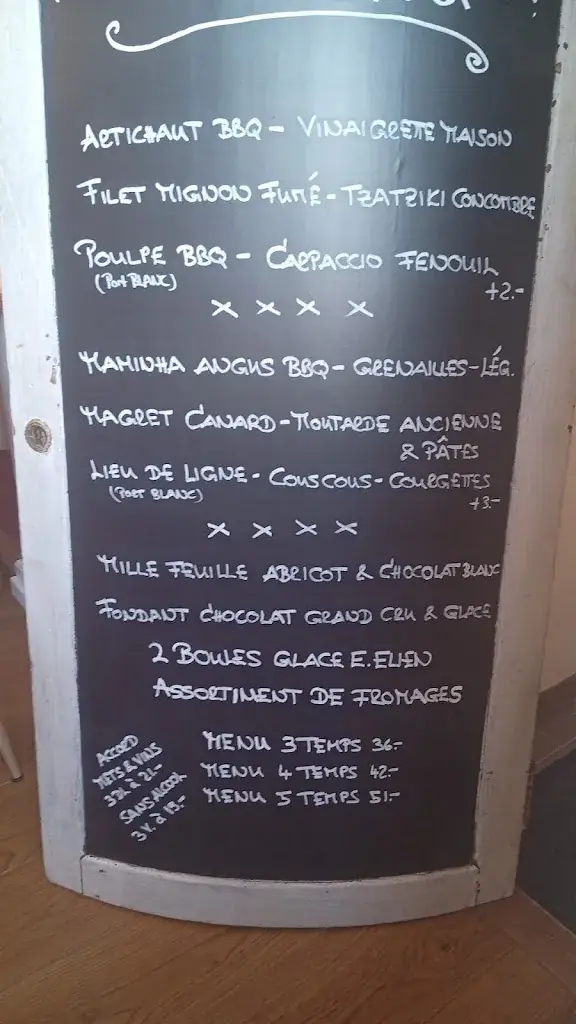 ARTICHAUT BBQ - VINAIGRETTE MAISON
FILET MIGNON FUMÉ - TZATZIKI CONCOMBRE
POULPE BBQ - CARPACCIO FENOUIL
(PORT BLANC)
+2.-
x x x x
MAMINHA ANGUS BBQ - GRENAILLES - LÉG.
MAGRET CANARD - MOUTARDE ANCIENNE
& PÂTES
LIEU DE LIGNE - COUSCOUS - COURGETTES
(PORT BLANC)
+3.-
x x x x
MILLE FEUILLE ABRICOT & CHOCOLAT BLANC
FONDANT CHOCOLAT GRAND CRU & GLACE
2 BOULES GLACE E.ELIEN
ASSORTIMENT DE FROMAGES
MENU 3 TEMPS 36.-
MENU 4 TEMPS 42.-
MENU 5 TEMPS 51.-
ACCORD
METS & VINS
3 V. à 21.-
SANS ALCOOL
3 V. à 15.-